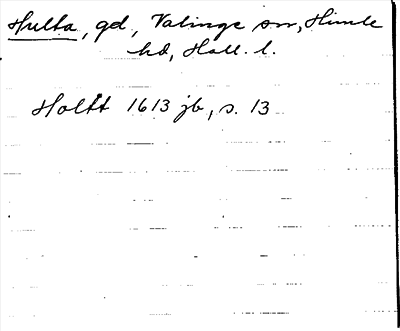 Hulta, gd, Valinge sn, Himle
hd, Hall. l.
Holtt 1613 jb, s. 13